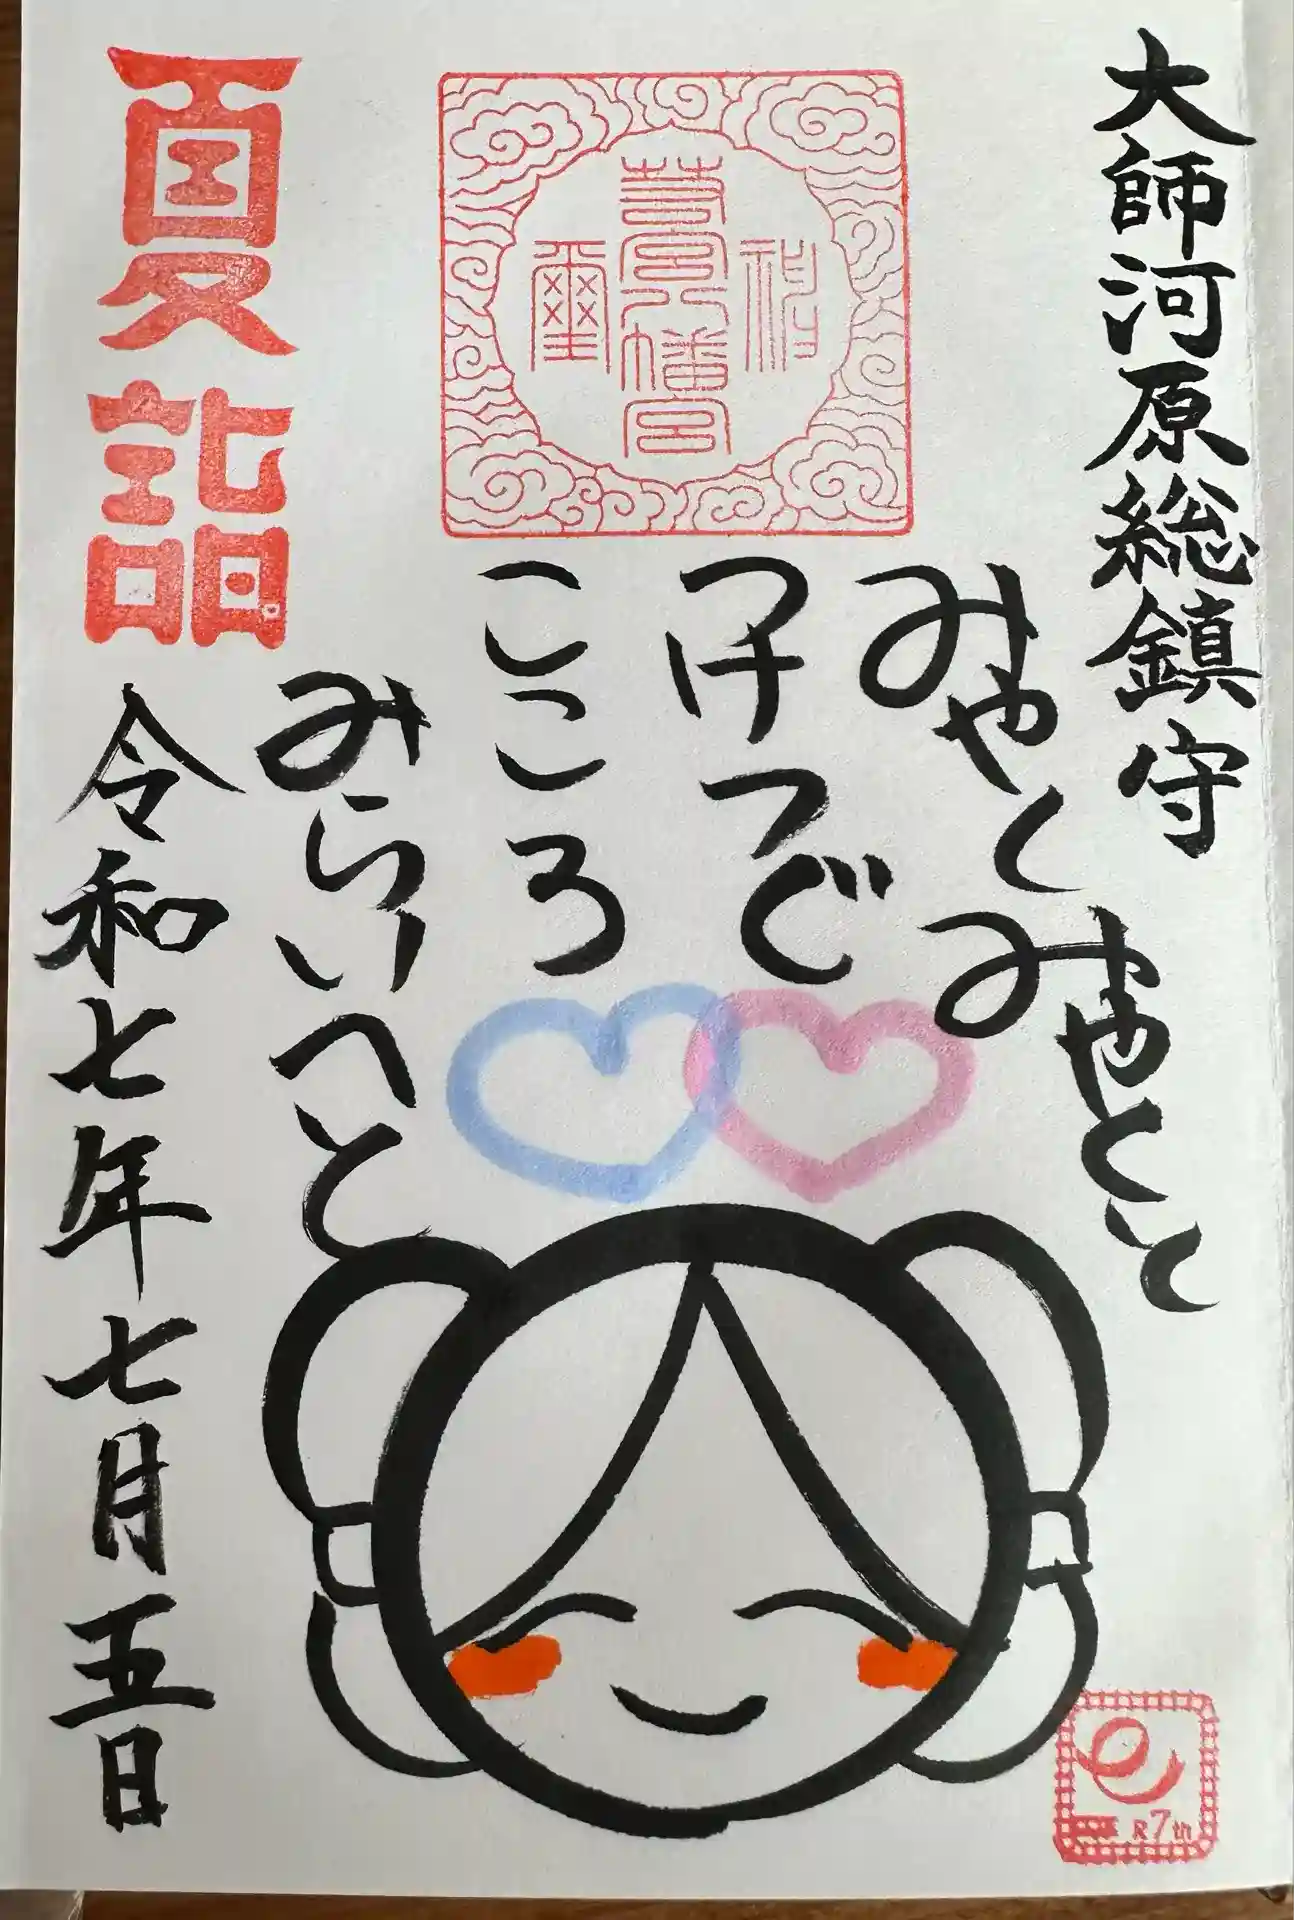 大師河原総鎮守
みやくみやくと
うけつぐ
こころ
みらいへと
夏詣
令和七年七月五日
若宮八幡宮
R7th